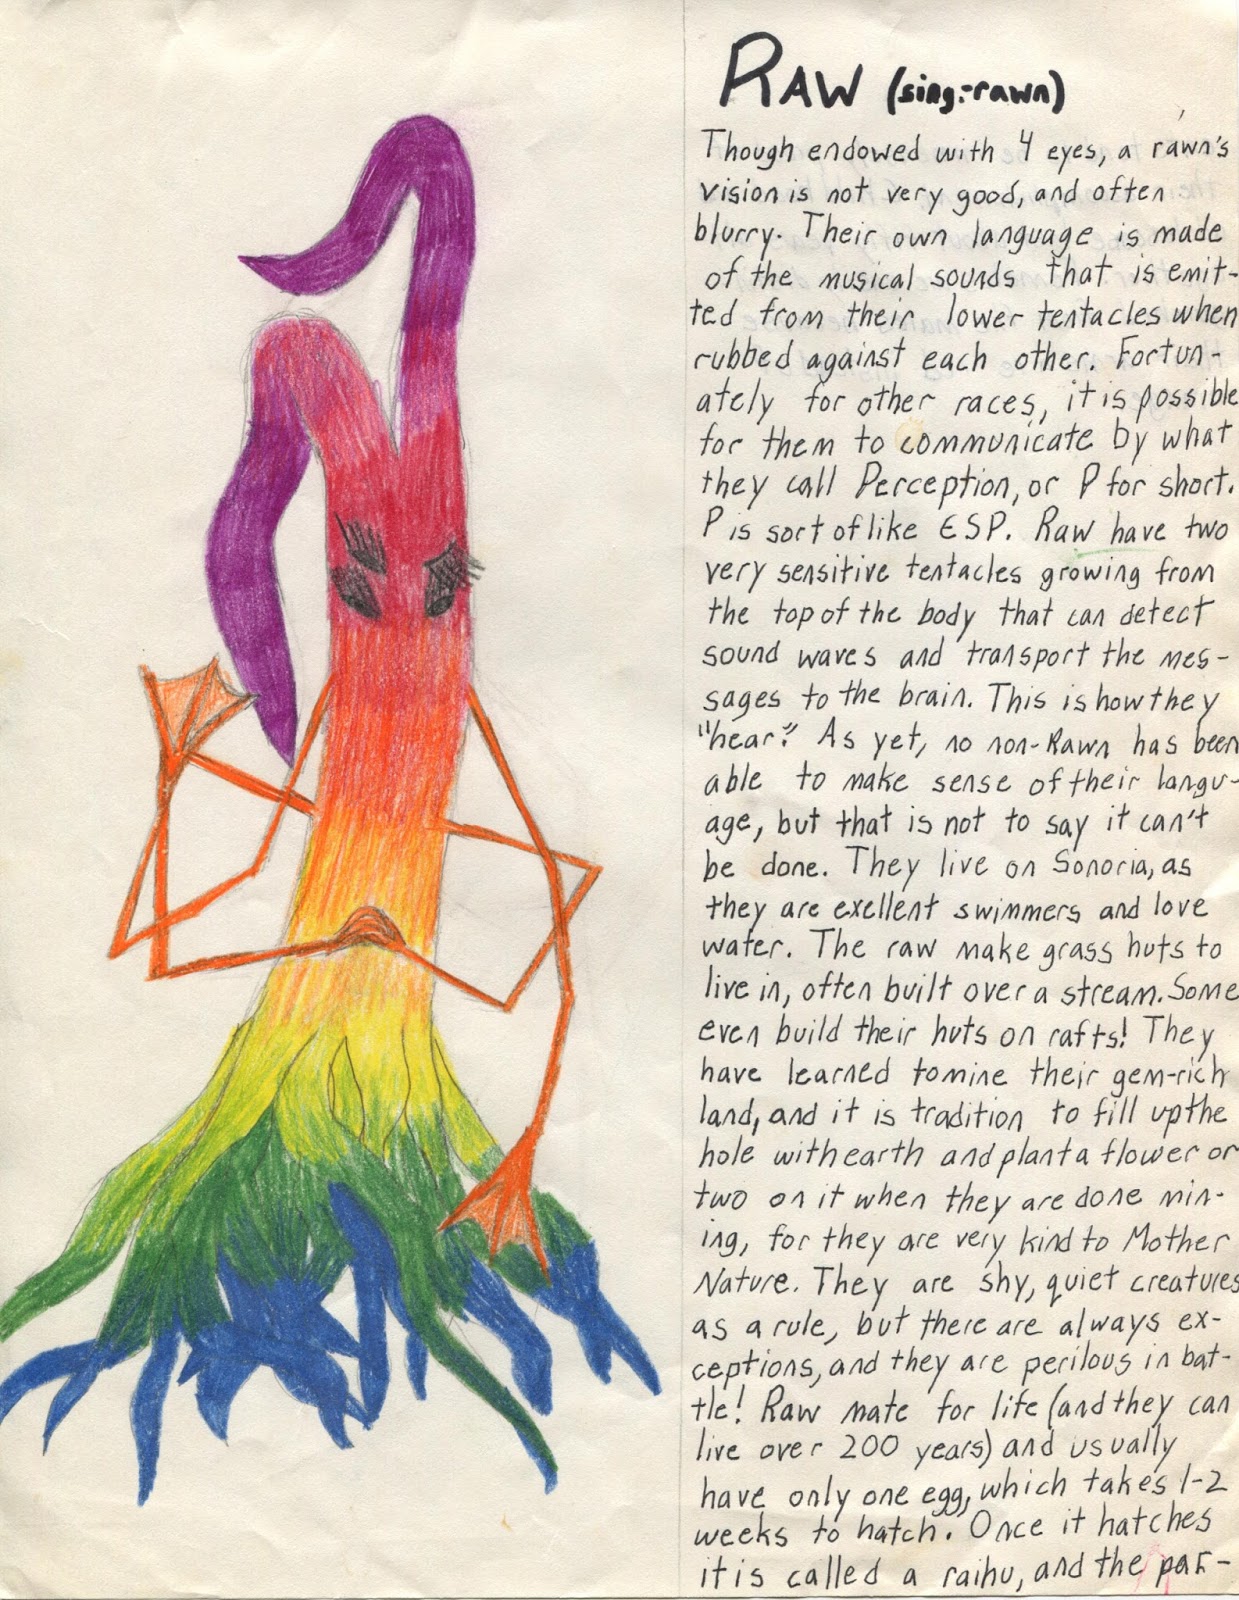 RAW (sing.-rawn)
Though endowed with 4 eyes, a rawn's
vision is not very good, and often
blurry. Their own language is made
of the musical sounds that is emit-
ted from their lower tentacles when
rubbed against each other. Fortun-
ately for other races, it is possible
for them to communicate by what
they call Perception, or P for short.
P is sort of like ESP. Raw have two
very sensitive tentacles growing from
the top of the body that can detect
sound waves and transport the mes-
sages to the brain. This is how they
"hear." As yet, no non-Rawn has been
able to make sense of their langu-
age, but that is not to say it can't
be done. They live on Sonoria, as
they are exellent swimmers and love
water. The raw make grass huts to
live in, often built over a stream. Some
even build their huts on rafts! They
have learned to mine their gem-rich
land, and it is tradition to fill up the
hole with earth and plant a flower or
two on it when they are done min-
ing, for they are very kind to Mother
Nature. They are shy, quiet creatures
as a rule, but there are always ex-
ceptions, and they are perilous in bat-
tle! Raw mate for life (and they can
live over 200 years) and usually
have only one egg, which takes 1-2
weeks to hatch. Once it hatches
it is called a raihu, and the par-